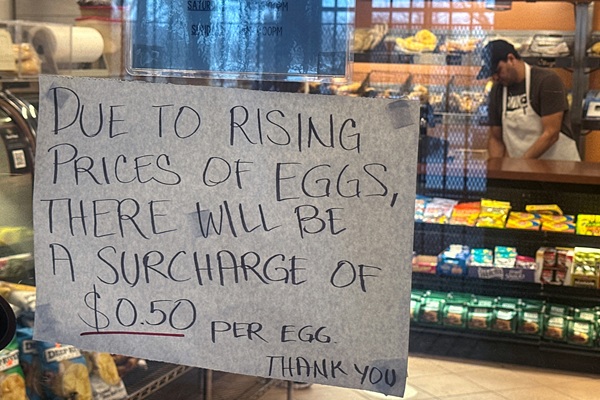 SATURD
SUNDAY
00PM
DUE TO RISING
PRICES OF EGGS,
THERE WILL BE
A SURCHARGE OF
$0.50 PER EGG.
THANK YOU